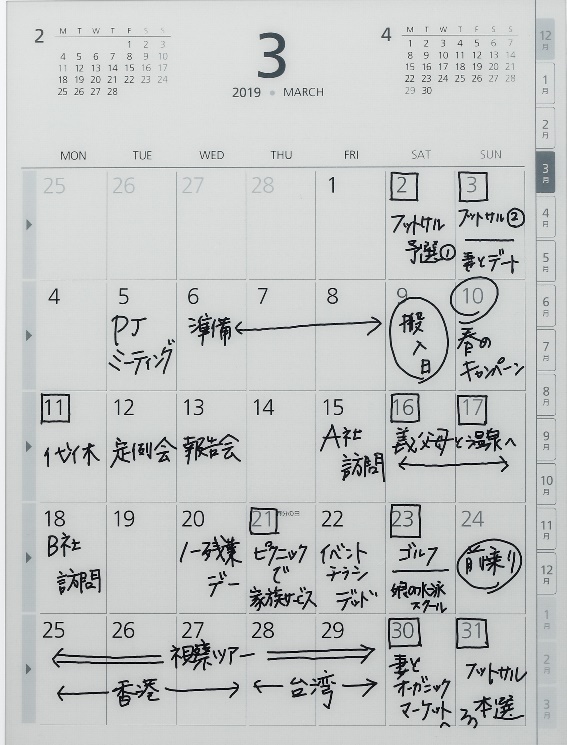 2
M T W T F S S
1 2 3
4 5 6 7 8 9 10
11 12 13 14 15 16 17
18 19 20 21 22 23 24
25 26 27 28
3
2019 MARCH
4
M T W T F S S
1 2 3 4 5 6 7
8 9 10 11 12 13 14
15 16 17 18 19 20 21
22 23 24 25 26 27 28
29 30
12月
1月
2月
3月
4月
5月
6月
7月
8月
9月
10月
11月
12月
1月
2月
3月
MON TUE WED THU FRI SAT SUN
25 26 27 28 1 2 3
フットサル
予選①
フットサル②
妻とデート
4 5 6 7 8 9 10
PJ
ミーティング
準備
搬
入
日
春の
キャンペーン
11 12 13 14 15 16 17
代休
定例会
報告会
A社
訪問
義父母と温泉へ
18 19 20 21 春分の日 22 23 24
B社
訪問
ノー残業
デー
ピクニック
で
家族サービス
イベント
チラシ
デッド
ゴルフ
娘の水泳
スクール
前乗り
25 26 27 28 29 30 31
視察ツアー
香港
台湾
妻と
オーガニック
マーケットへ
フットサル
本選